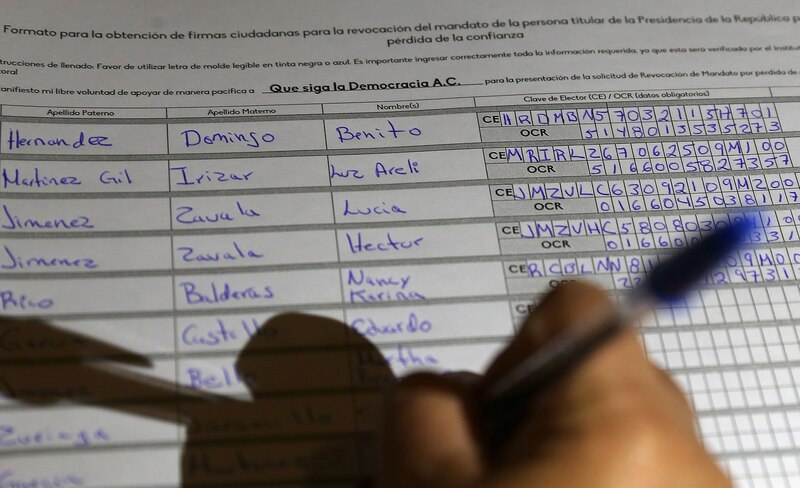 Formato para la obtención de firmas ciudadanas para la revocación del mandato de la persona titular de la Presidencia de la República p
pérdida de la confianza
trucciones de llenado: Favor de utilizar letra de molde legible en tinta negra o azul. Es importante ingresar correctamente toda la información requerida, ya que esta será verificado por el Institut
oral
anifiesto mi libre voluntad de apoyar de manera pacífica a Que siga la Democracia A.C. para la presentación de la solicitud de Revocación de Mandato por pérdida de
Apellido Paterno Apellido Materno Nombre(s) Clave de Elector (CE) / OCR (datos obligatorios)
Hernandez Domingo Benito CE HRDMBN57032115H701
OCR 5148013535273
Martinez Gil Irizar Luz Areli CE MRIRLZ67062509M100
OCR 5166005827357
Jimenez Zavala Lucia CE JMZVLC63092109M200
OCR 0166045038117
Jimenez Zavala Hector CE JMZVHC580803
OCR 016600
Rico Balderas Nancy CE RCOLNN81
Karina
Castillo Eduardo CE
Bello
Zuñiga